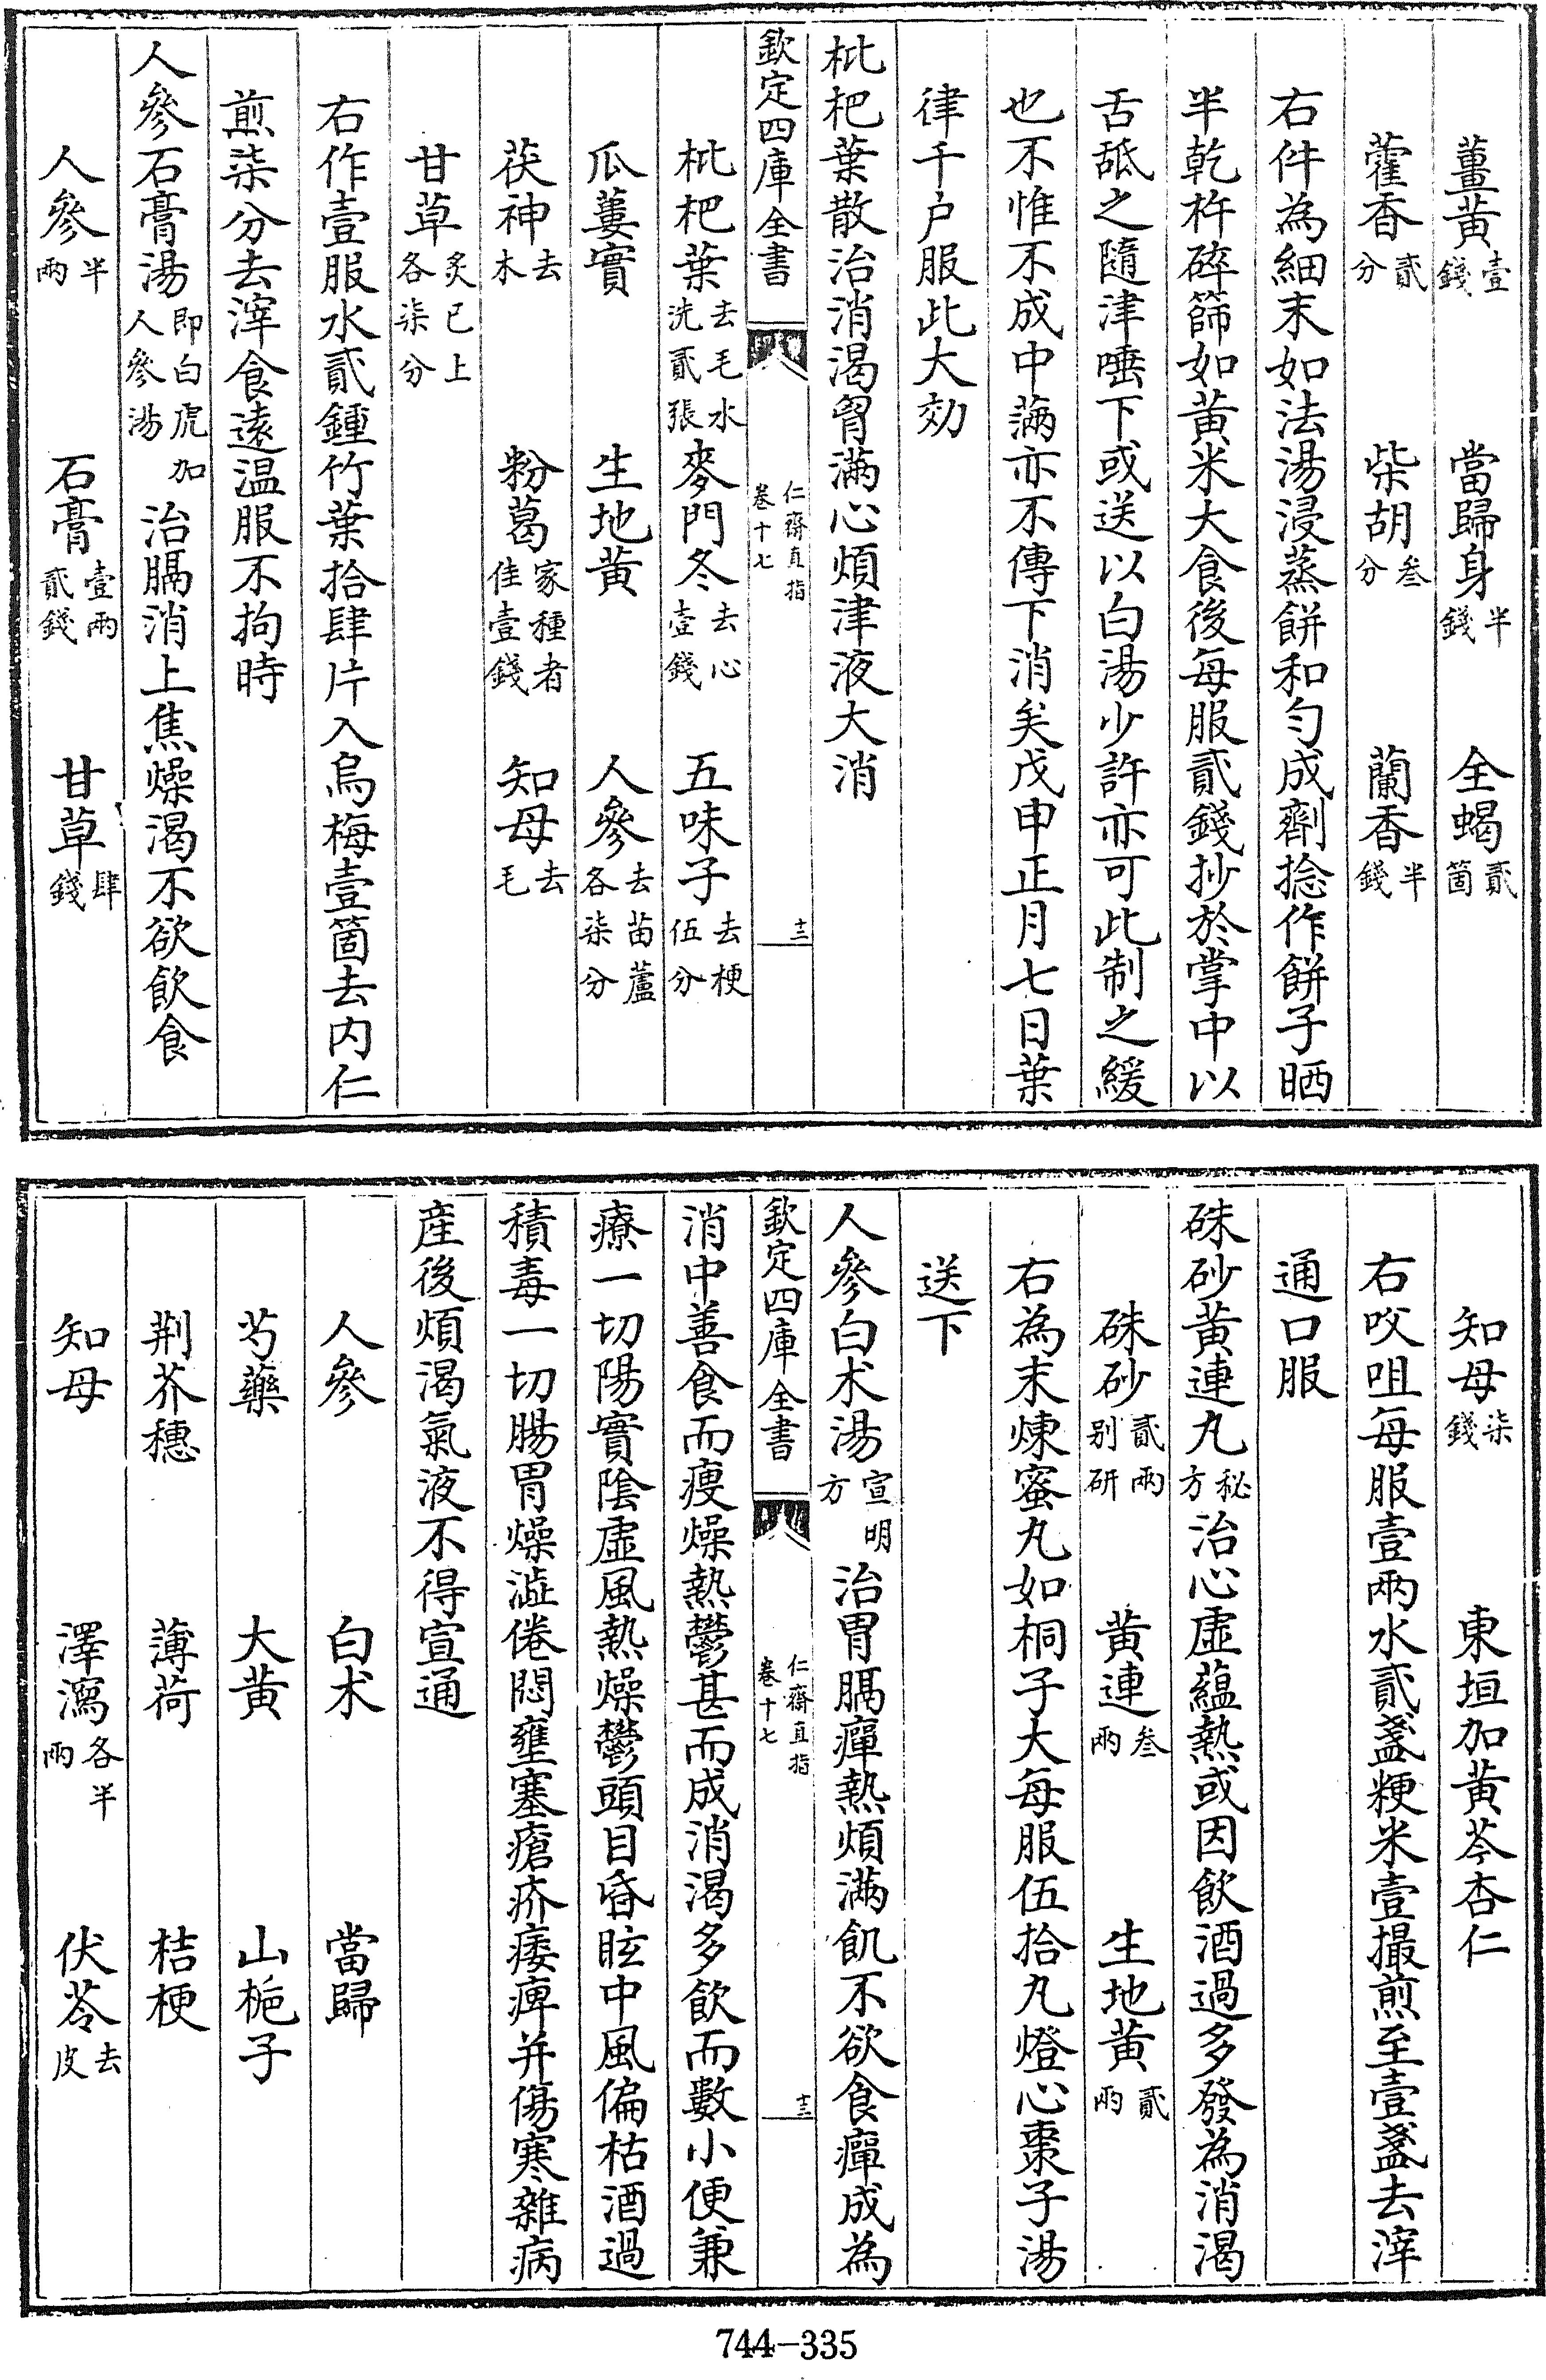 薑黃壹錢　當歸身半錢　全蝎貳箇
藿香貳分　柴胡叁分　蘭香半錢
右件為細末如法湯浸蒸餅和勻成劑捻作餅子晒
半乾杵碎篩如黃米大食後每服貳錢抄於掌中以
舌䑛之隨津唾下或送以白湯少許亦可此制之緩
也不惟不成中滿亦不傳下消矣戊申正月七日葉
律千户服此大効
枇杷葉散治消渴胷滿心煩津液大消
欽定四庫全書　仁齋直指卷十七　十二
枇杷葉去毛水洗貳張　麥門冬去心壹錢　五味子去梗伍分
瓜蔞實　生地黃　人參去苗蘆各柒分
茯神去木　粉葛家種者佳壹錢　知母去毛
甘草炙已上各柒分
右作壹服水貳鍾竹葉拾肆片入烏梅壹箇去內仁
煎柒分去滓食遠温服不拘時
人參石膏湯即白虎加人參湯　治膈消上焦燥渴不欲飲食
人參半兩　石膏壹兩貳錢　甘草肆錢
知母柒錢　東垣加黃芩杏仁
右㕮咀每服壹兩水貳盞粳米壹撮煎至壹盞去滓
通口服
硃砂黃連丸秘方治心虛蘊熱或因飲酒過多發為消渴
硃砂貳兩别研　黃連叁兩　生地黃貳兩
右為末煉蜜丸如桐子大每服伍拾丸燈心棗子湯
送下
人參白朮湯宣明方　治胃膈癉熱煩滿飢不欲食癉成為
欽定四庫全書　仁齋直指卷十七　十三
消中善食而瘦燥熱鬱甚而成消渴多飲而數小便兼
療一切陽實陰虛風熱燥鬱頭目昏眩中風偏枯酒過
積毒一切腸胃燥澁倦悶壅塞瘡疥痿痺并傷寒雜病
産後煩渴氣液不得宣通
人參　白朮　當歸
芍藥　大黃　山梔子
荆芥穗　薄荷　桔梗
知母　澤瀉各半兩　伏苓去皮
744-335